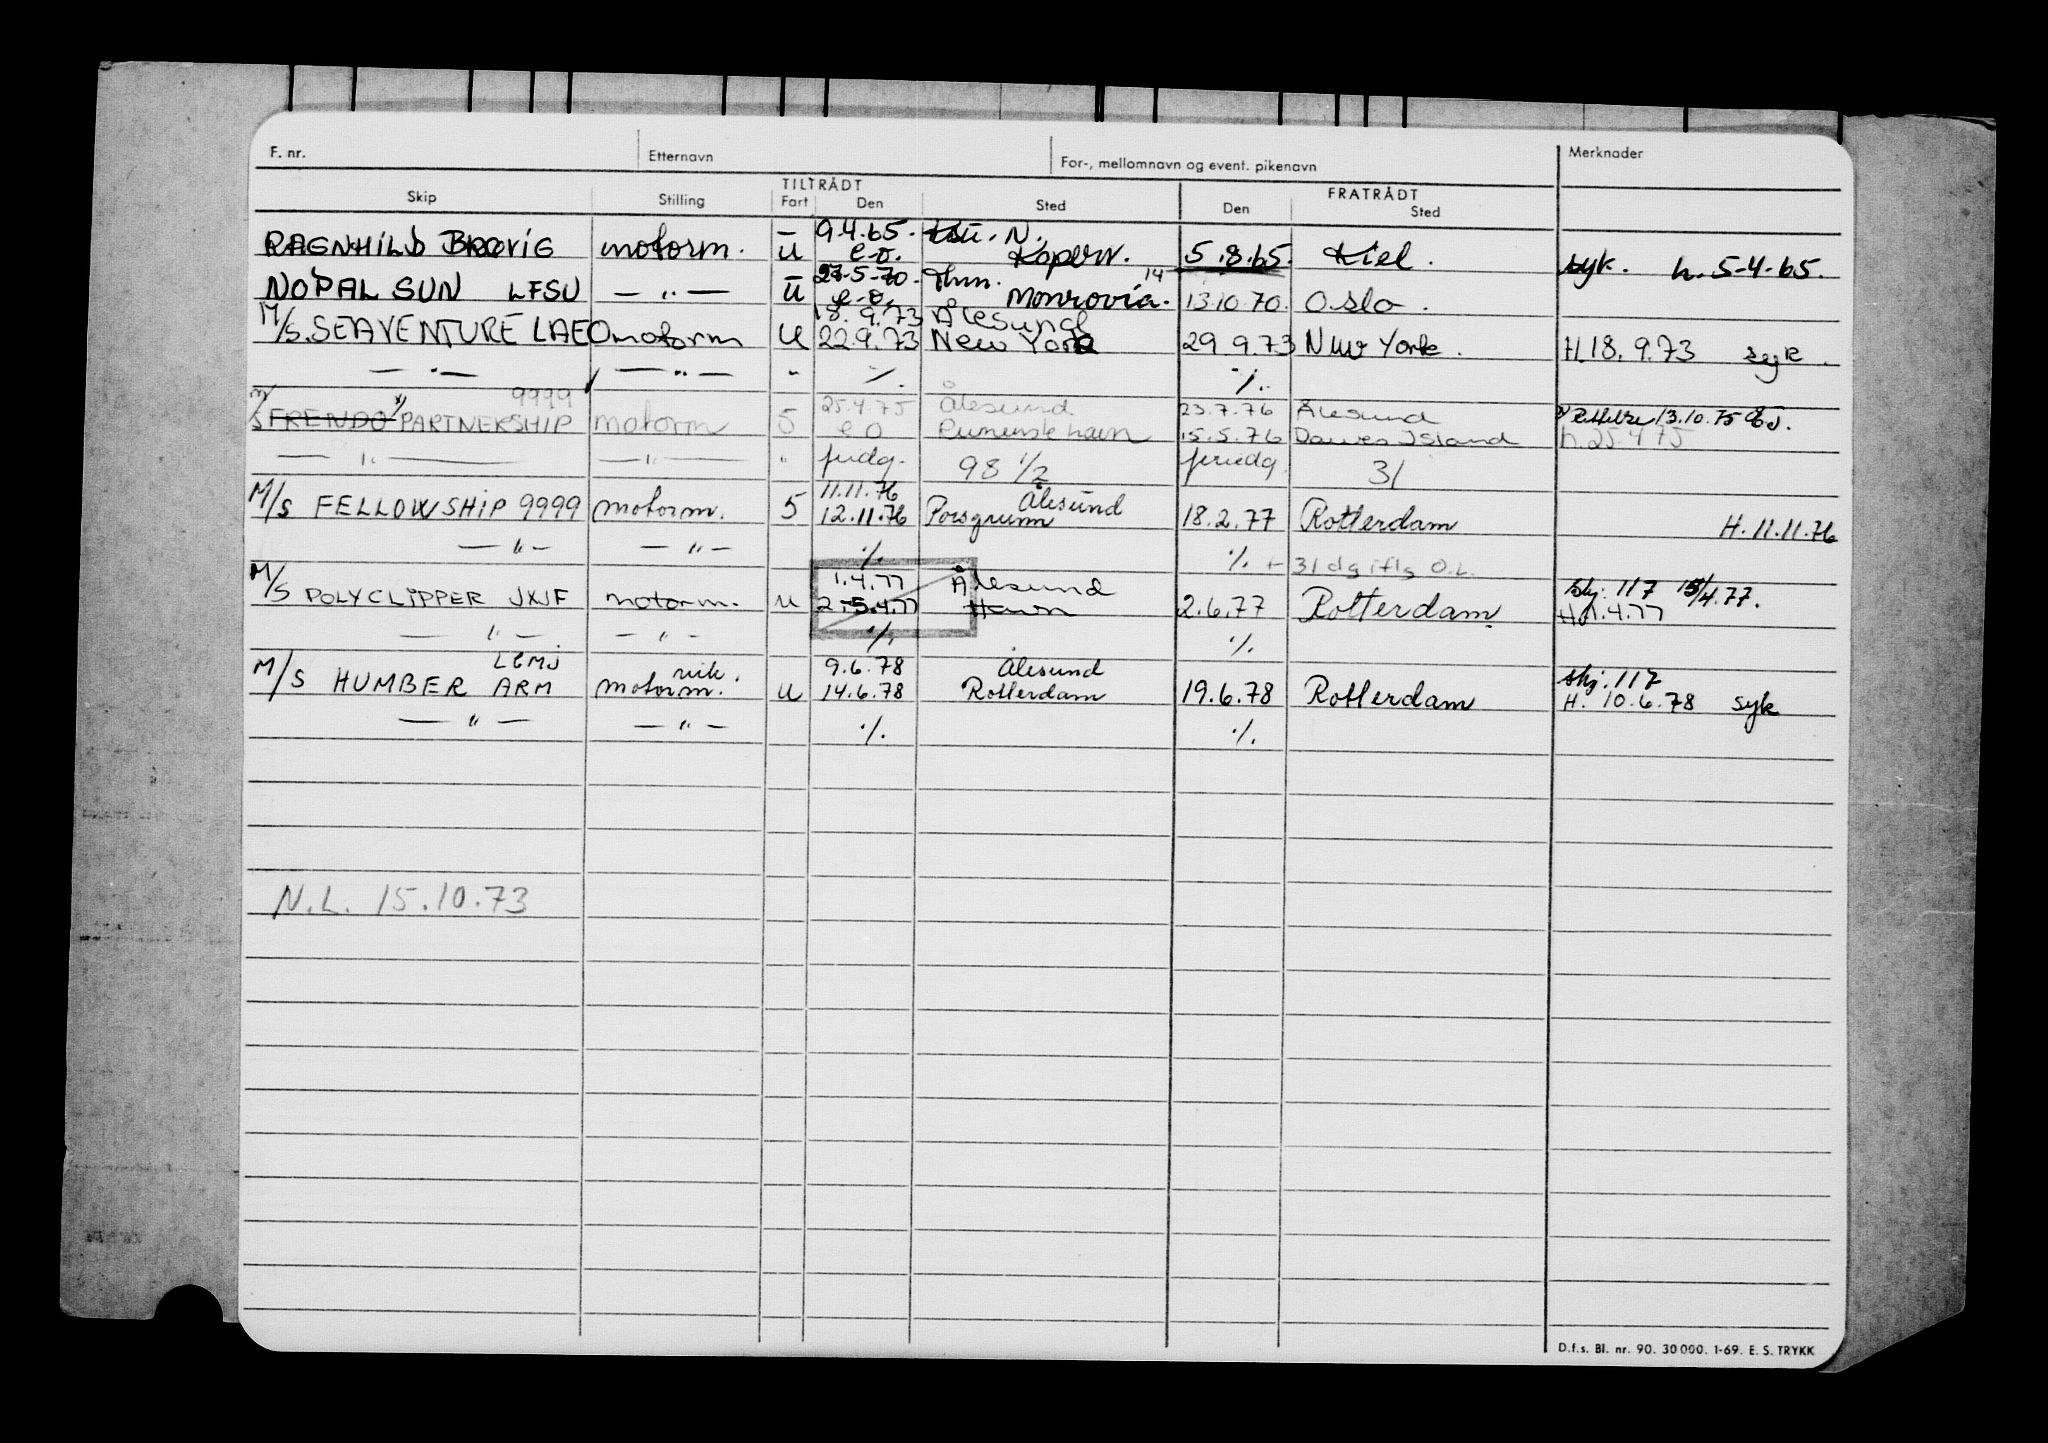 F. nr. Etternavn For-, mellomnavn og event. pikenavn Merknader
TILTRÅDT FRATRÅDT
Skip Stilling Fart Den Sted Den Sted
— 9.4.65. N.
RAGNHILD BRØVIG motorm. U e.o. Koperv. 5.8.65. Kiel. syk. h. 5-4-65.
— 27-5-70. Thm. 14
NOPAL SUN LFSU — " — U e.o. Monrovia. 13.10.70. Oslo.
18.9.73 Ålesund
M/S. SEAVENTURE LAEO motorm U 22.9.73 New York 29.9.73 New York. H.18.9.73 syk.
— " — — " — " ./. ./.
9999 25.4.75 Ålesund 23.7.76 Ålesund x) Rettelse 13.10.75
M/S FRENDO x) PARTNERSHIP motorm 5 e o 15.5.76 Dawes Island h. 25.4.75
— " — — " — " 98 1/2 31
11.11.76 Ålesund
M/S FELLOWSHIP 9999 motorm. 5 12.11.76 Porsgrunn 18.2.77 Rotterdam H. 11.11.76
— " — — " — ./. ./. + 31 dg iflg O.L.
1.4.77 Ålesund skj. 117 15/4.77.
M/S POLYCLIPPER JXJF motorm. U 2.5.4.77 Havn 2.6.77 Rotterdam. H.1.4.77
— " — — " — ./. ./.
LEMJ vik. 9.6.78 Ålesund skj. 117
M/S HUMBER ARM motorm. U 14.6.78 Rotterdam 19.6.78 Rotterdam H. 10.6.78 syk
— " — — " — ./. ./.
N.L. 15.10.73
D.f.s. Bl. nr. 90. 30000. 1-69. E. S. TRYKK